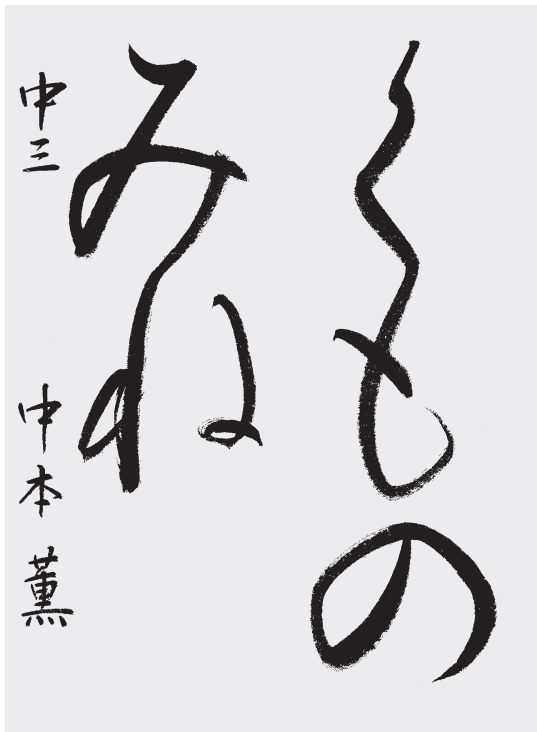 くもの
みね
中三 中本薫